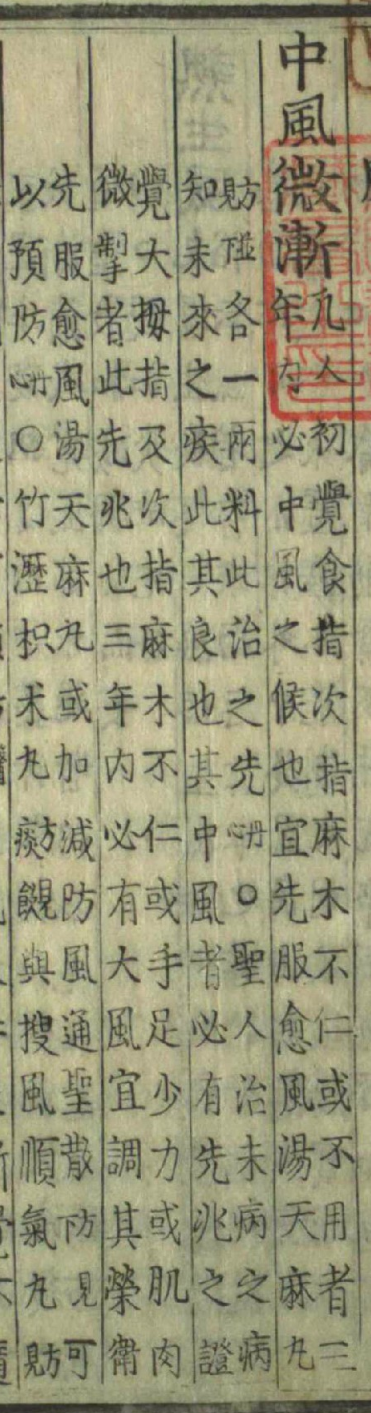 中風微漸 凡人初覺食指次指麻木不仁或不用者三
年內必中風之候也宜先服愈風湯天麻丸
方見下各一兩料此治之先丹心○聖人治未病之病
知未來之疾此其良也其中風者必有先兆之證
覺大拇指及次指麻木不仁或手足少力或肌肉
微掣者此先兆也三年內必有大風宜調其榮衛
先服愈風湯天麻丸或加減防風通聖散方見下可
以預防丹心○竹瀝枳朮丸方見痰飮與搜風順氣丸方見